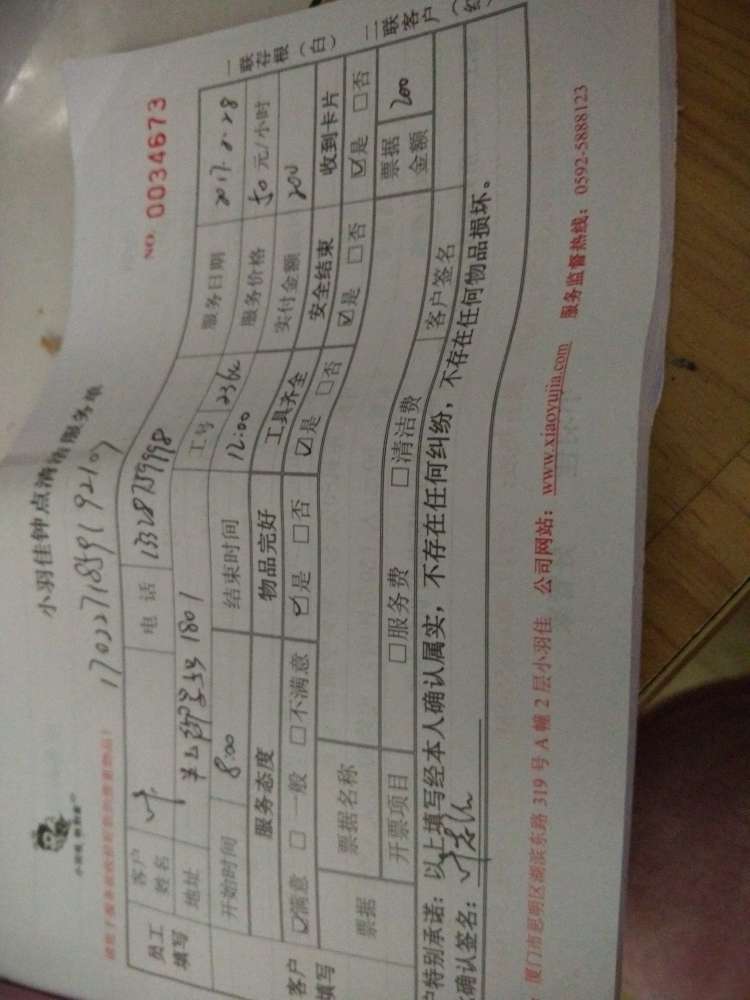 小羽佳钟点清洁服务单
NO. 0034673
1702271859192107
员工填写 客户姓名 叶 电话 13328759998 服务日期
地址 1801 工号 服务价格 50元/小时
开始时间 8:00 结束时间 12:00 实付金额 200
客户填写 服务态度 物品完好 工具齐全 安全结束 收到卡片
☑满意 □一般 □不满意 ☑是 □否 ☑是 □否 ☑是 □否 ☑是 □否
票据 票据名称 票据金额 200
开票项目 □服务费 □清洁费 客户签名
户特别承诺：以上填写经本人确认属实，不存在任何纠纷，不存在任何物品损坏。
确认签名：
厦门市思明区湖滨东路 319 号 A 幢 2 层小羽佳 公司网站：www.xiaoyujia.com 服务监督热线：0592-5888123
一联存根（白） 二联客户